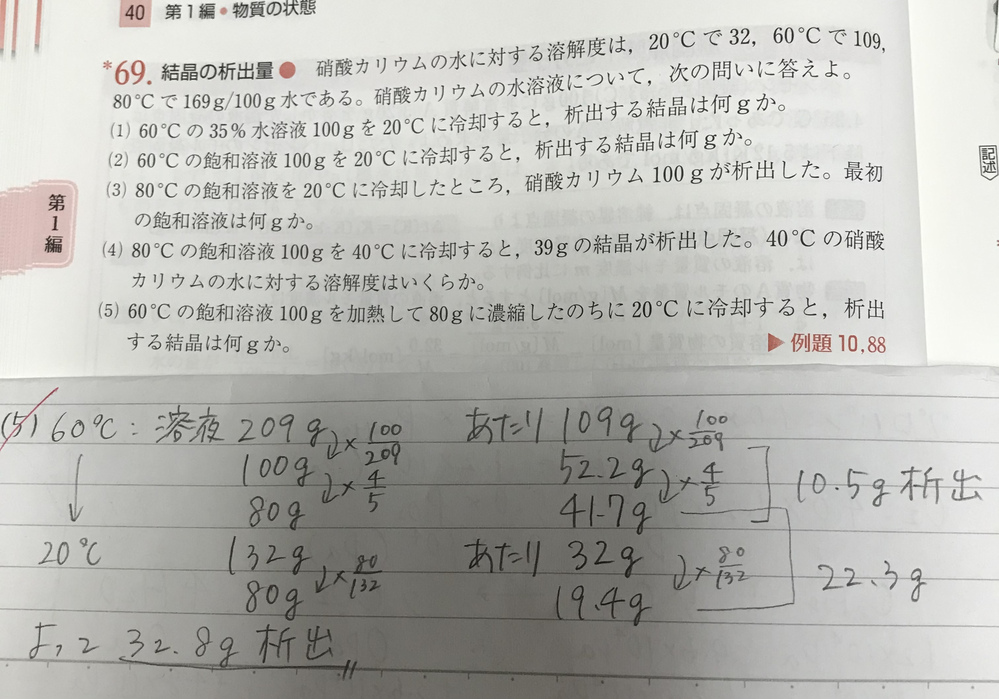 40 第1編●物質の状態
*69. 結晶の析出量● 硝酸カリウムの水に対する溶解度は，20℃で32，60℃で109，
80℃で169g/100g水である。硝酸カリウムの水溶液について，次の問いに答えよ。
(1) 60℃の35%水溶液100gを20℃に冷却すると，析出する結晶は何gか。
(2) 60℃の飽和溶液100gを20℃に冷却すると，析出する結晶は何gか。
(3) 80℃の飽和溶液を20℃に冷却したところ，硝酸カリウム100gが析出した。最初
の飽和溶液は何gか。
(4) 80℃の飽和溶液100gを40℃に冷却すると，39gの結晶が析出した。40℃の硝酸
カリウムの水に対する溶解度はいくらか。
(5) 60℃の飽和溶液100gを加熱して80gに濃縮したのちに20℃に冷却すると，析出
する結晶は何gか。
▶例題10,88
第1編
記述
(5) 60℃: 溶液 209g あたり 109g
×100/209 ×100/209
100g 52.2g
×4/5 ×4/5 10.5g 析出
80g 41.7g
20℃ 132g あたり 32g
×80/132 ×80/132 22.3g
80g 19.4g
よって 32.8g 析出